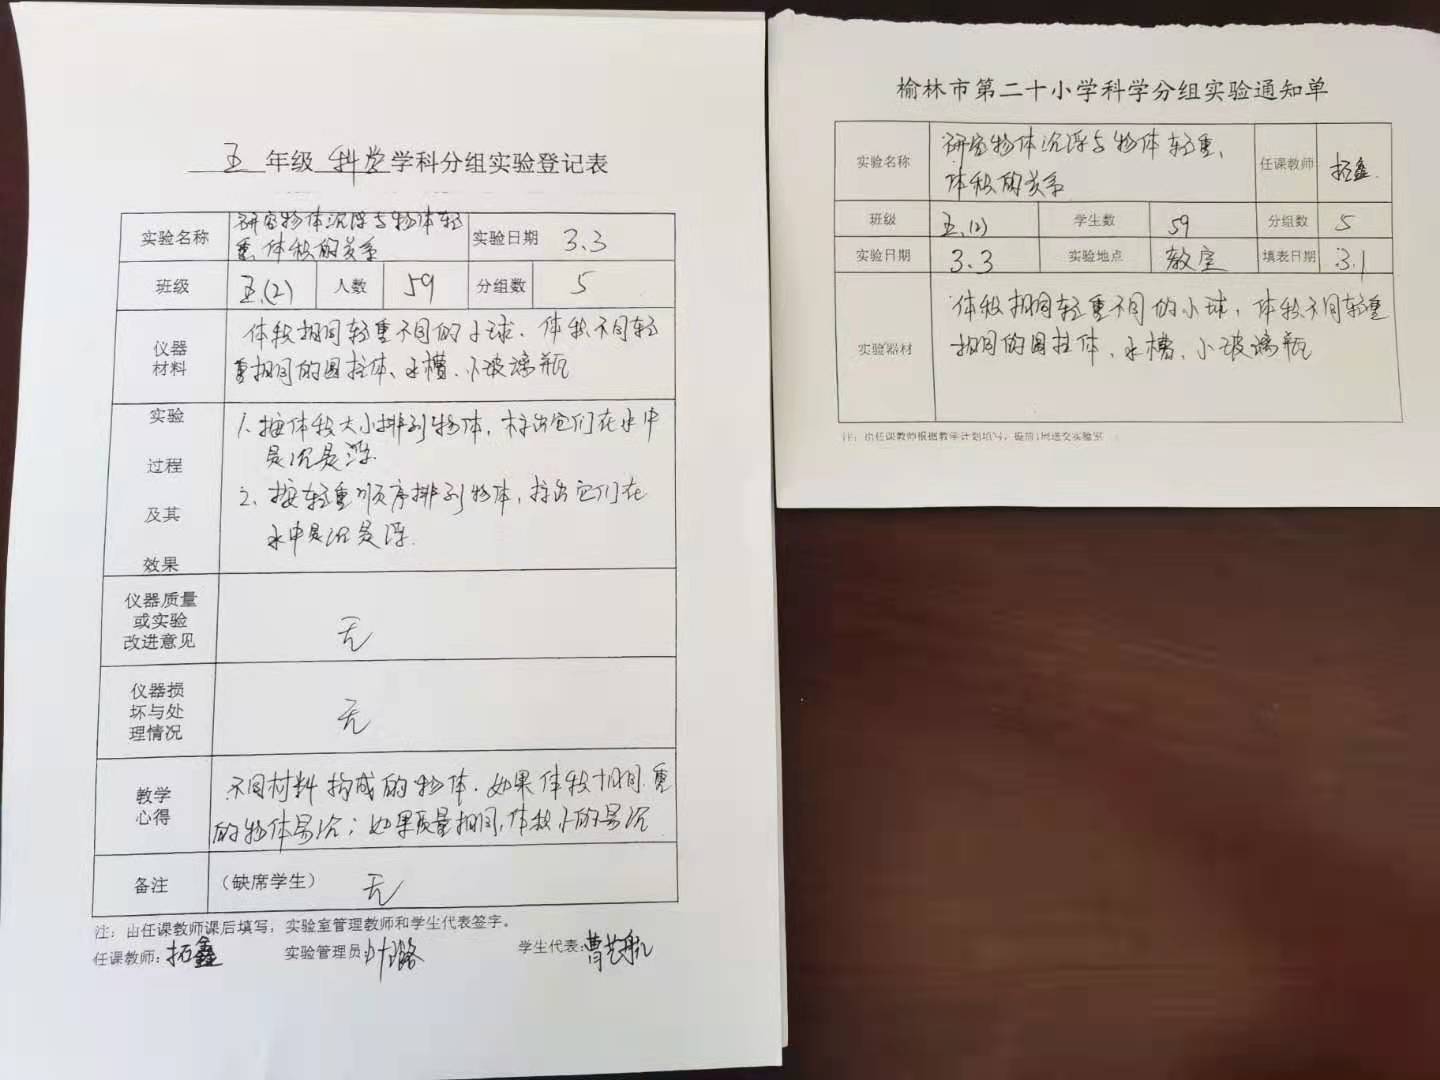 五年级科学学科分组实验登记表
实验名称
研究物体沉浮与物体轻
重、体积的关系
实验日期
3.3
班级
五.(2)
人数
59
分组数
5
仪器
材料
体积相同轻重不同的小球、体积不同轻
重相同的圆柱体、水槽、小玻璃瓶
实验
过程
及其
效果
1、按体积大小排列物体，标出它们在水中
是沉是浮.
2、按轻重顺序排列物体，标出它们在
水中是沉是浮.
仪器质量
或实验
改进意见
无
仪器损
坏与处
理情况
无
教学
心得
不同材料构成的物体.如果体积相同.重
的物体易沉；如果质量相同,体积小的易沉
备注
（缺席学生） 无
注：由任课教师课后填写，实验室管理教师和学生代表签字。
任课教师：拓鑫 实验管理员 学生代表：曹艺航
榆林市第二十小学科学分组实验通知单
实验名称
研究物体沉浮与物体轻重、
体积的关系
任课教师
拓鑫.
班级
五.(2)
学生数
59
分组数
5
实验日期
3.3
实验地点
教室
填表日期
3.1
实验器材
体积相同轻重不同的小球，体积不同轻重
相同的圆柱体、水槽、小玻璃瓶
注：由任课教师根据教学计划填写，提前1周送交实验室